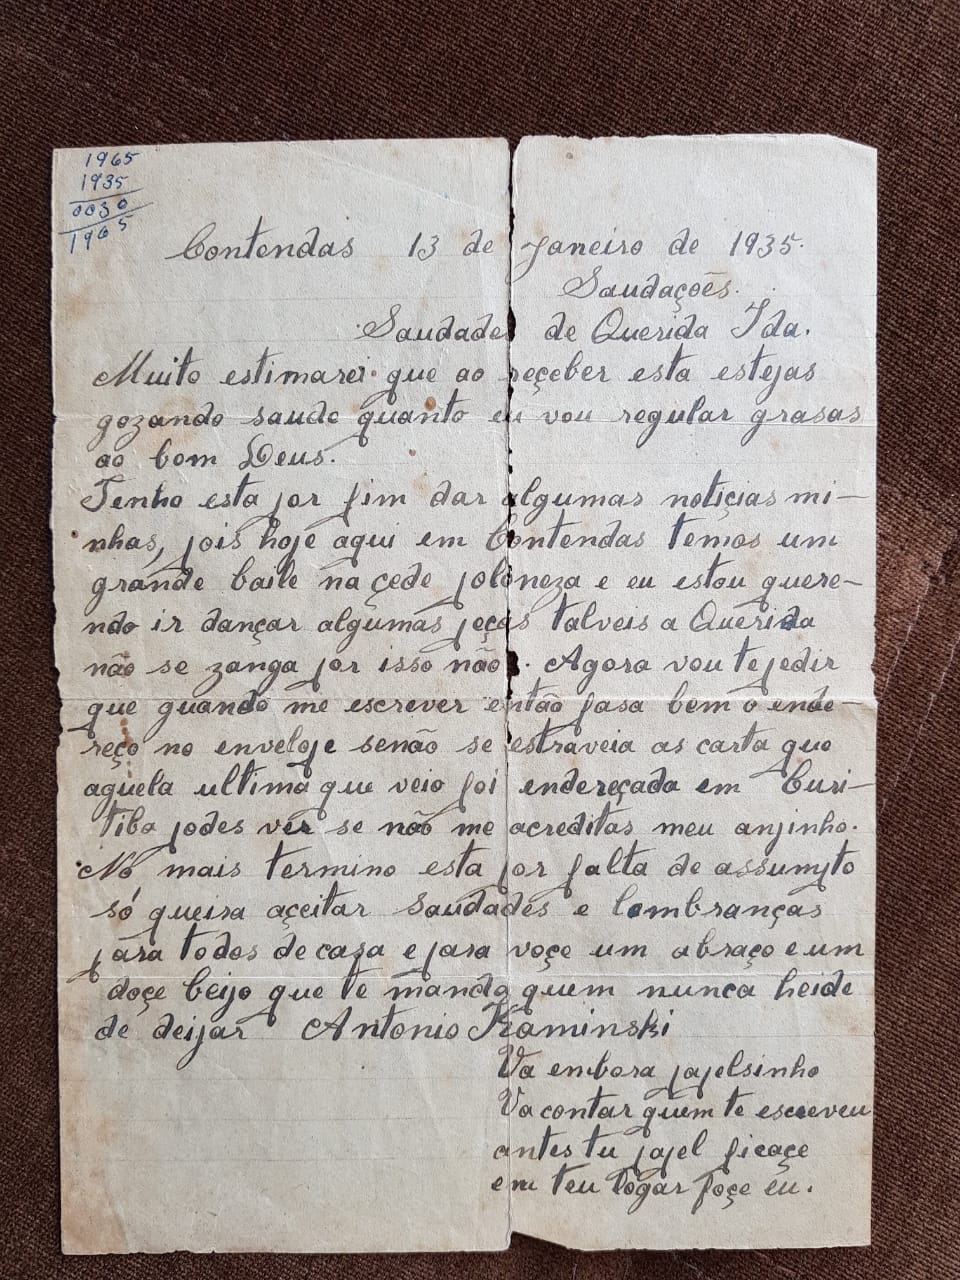 1965
1935
0030
1965
Contendas 13 de Janeiro de 1935.
Saudações.
Saudades de Querida Ida.
Muito estimarei que ao reçeber esta estejas
gozando saude quanto eu vou regular grasas
ao bom Deus.
Tenho esta por fim dar algumas notiçias mi-
nhas, pois hoje aqui em Contendas temos um
grande baile na çede poloneza e eu estou quere-
ndo ir dançar algumas peças talveis a Querida
não se zanga por isso não. Agora vou te pedir
que quando me escrever então fasa bem o ende-
reço no envelope senão se estraveia as carta que
aquela ultima que veio foi endereçada em Curi-
tiba podes ver se não me acreditas meu anjinho.
No mais termino esta por falta de assumpto
só queira açeitar saudades e lembranças
para todos de casa e para voçe um abraço e um
doçe beijo que te manda quem nunca heide
de deijar Antonio Kaminski
Va embora papelsinho
Va contar quem te escreveu
antes tu papel ficaçe
em teu logar foçe eu.